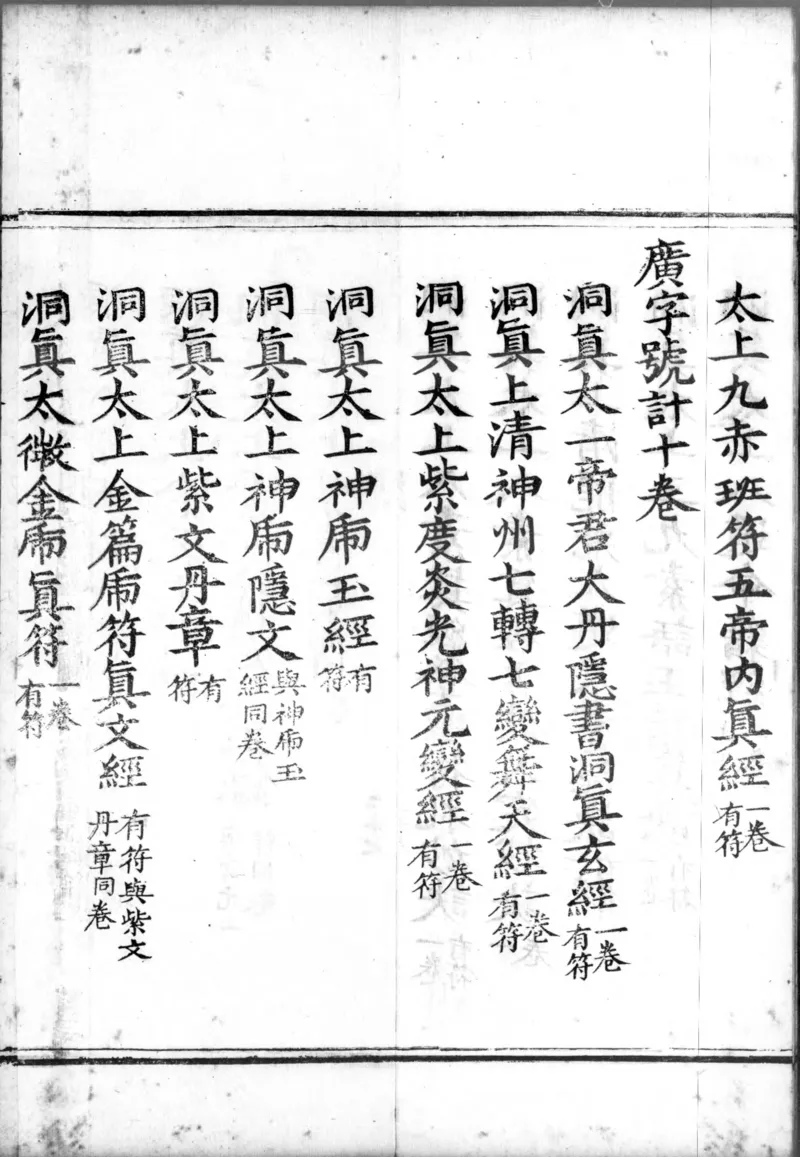 太上九赤班符五帝内眞經一卷有符
廣字號計十卷
洞眞太一帝君大丹隱書洞眞玄經一卷有符
洞眞上清神州七轉七變舞天經一卷有符
洞眞太上紫度炎光神元變經一卷有符
洞眞太上神虎玉經有符
洞眞太上神虎隱文與神虎玉經同卷
洞眞太上紫文丹章有符
洞眞太上金篇虎符眞文經有符與紫文丹章同卷
洞眞太微金虎眞符一卷有符